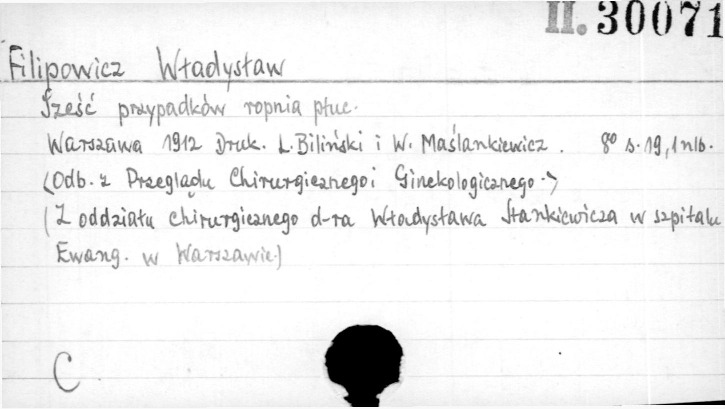 II. 30071
Filipowicz Władysław
Sześć przypadków ropnia płuc.
Warszawa 1912 Druk. L. Biliński i W. Maślankiewicz. 8º s. 19, 1 nlb.
(Odb. z Przeglądu Chirurgicznego i Ginekologicznego.)
(Z oddziału chirurgicznego d-ra Władysława Stankiewicza w szpitalu
Ewang. w Warszawie.)
C